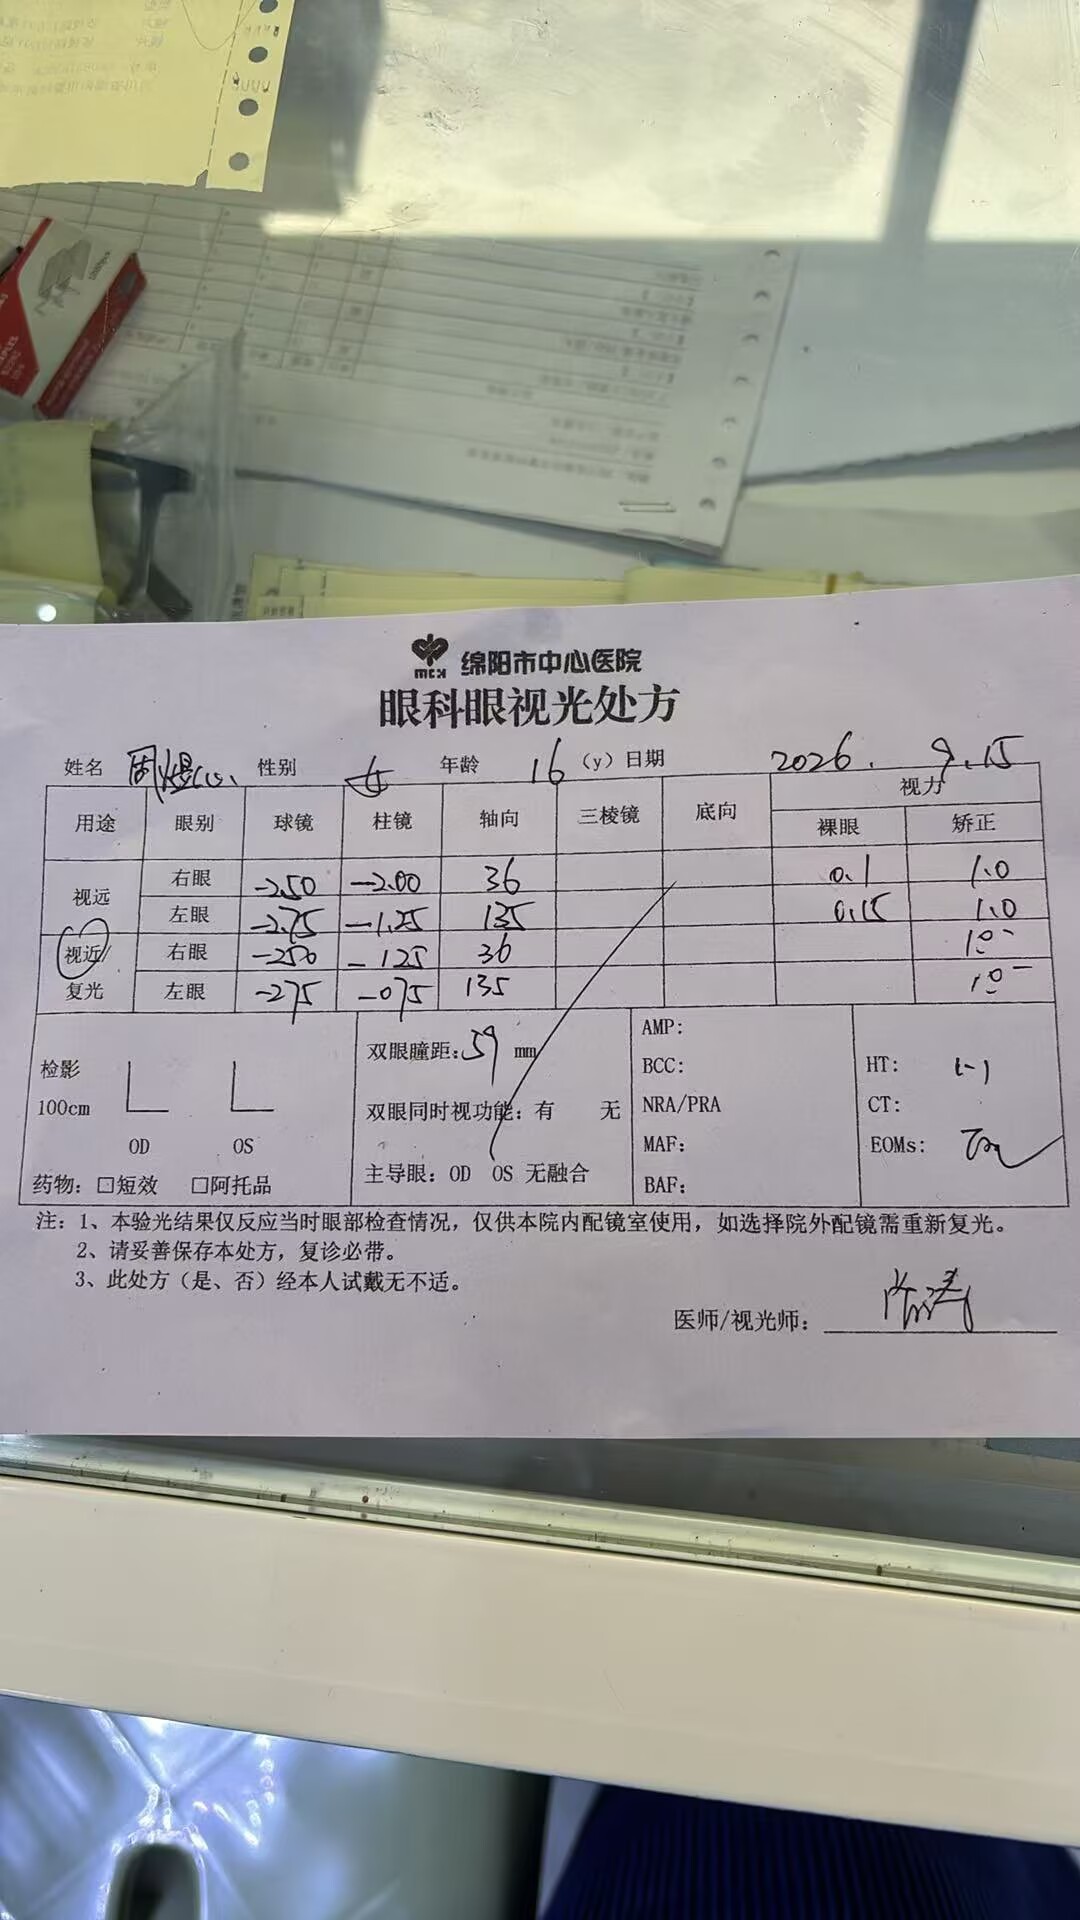 1000pcs
mck 绵阳市中心医院
眼科眼视光处方
姓名 周煜心 性别 女 年龄 16 (y) 日期 2026. 9.15
用途 眼别 球镜 柱镜 轴向 三棱镜 底向 视力
裸眼 矫正
视远 右眼 -2.50 -2.00 36 0.1 1.0
左眼 -2.75 -1.25 135 0.15 1.0
视近/ 右眼 -250 -125 36 10-
复光 左眼 -275 -075 135 10-
检影
100cm
OD OS
药物：□短效 □阿托品
双眼瞳距：59 mm
双眼同时视功能：有 无
主导眼：OD OS 无融合
AMP:
BCC:
NRA/PRA
MAF:
BAF:
HT: (-)
CT:
EOMs:
注：1、本验光结果仅反应当时眼部检查情况，仅供本院内配镜室使用，如选择院外配镜需重新复光。
2、请妥善保存本处方，复诊必带。
3、此处方（是、否）经本人试戴无不适。
医师/视光师：